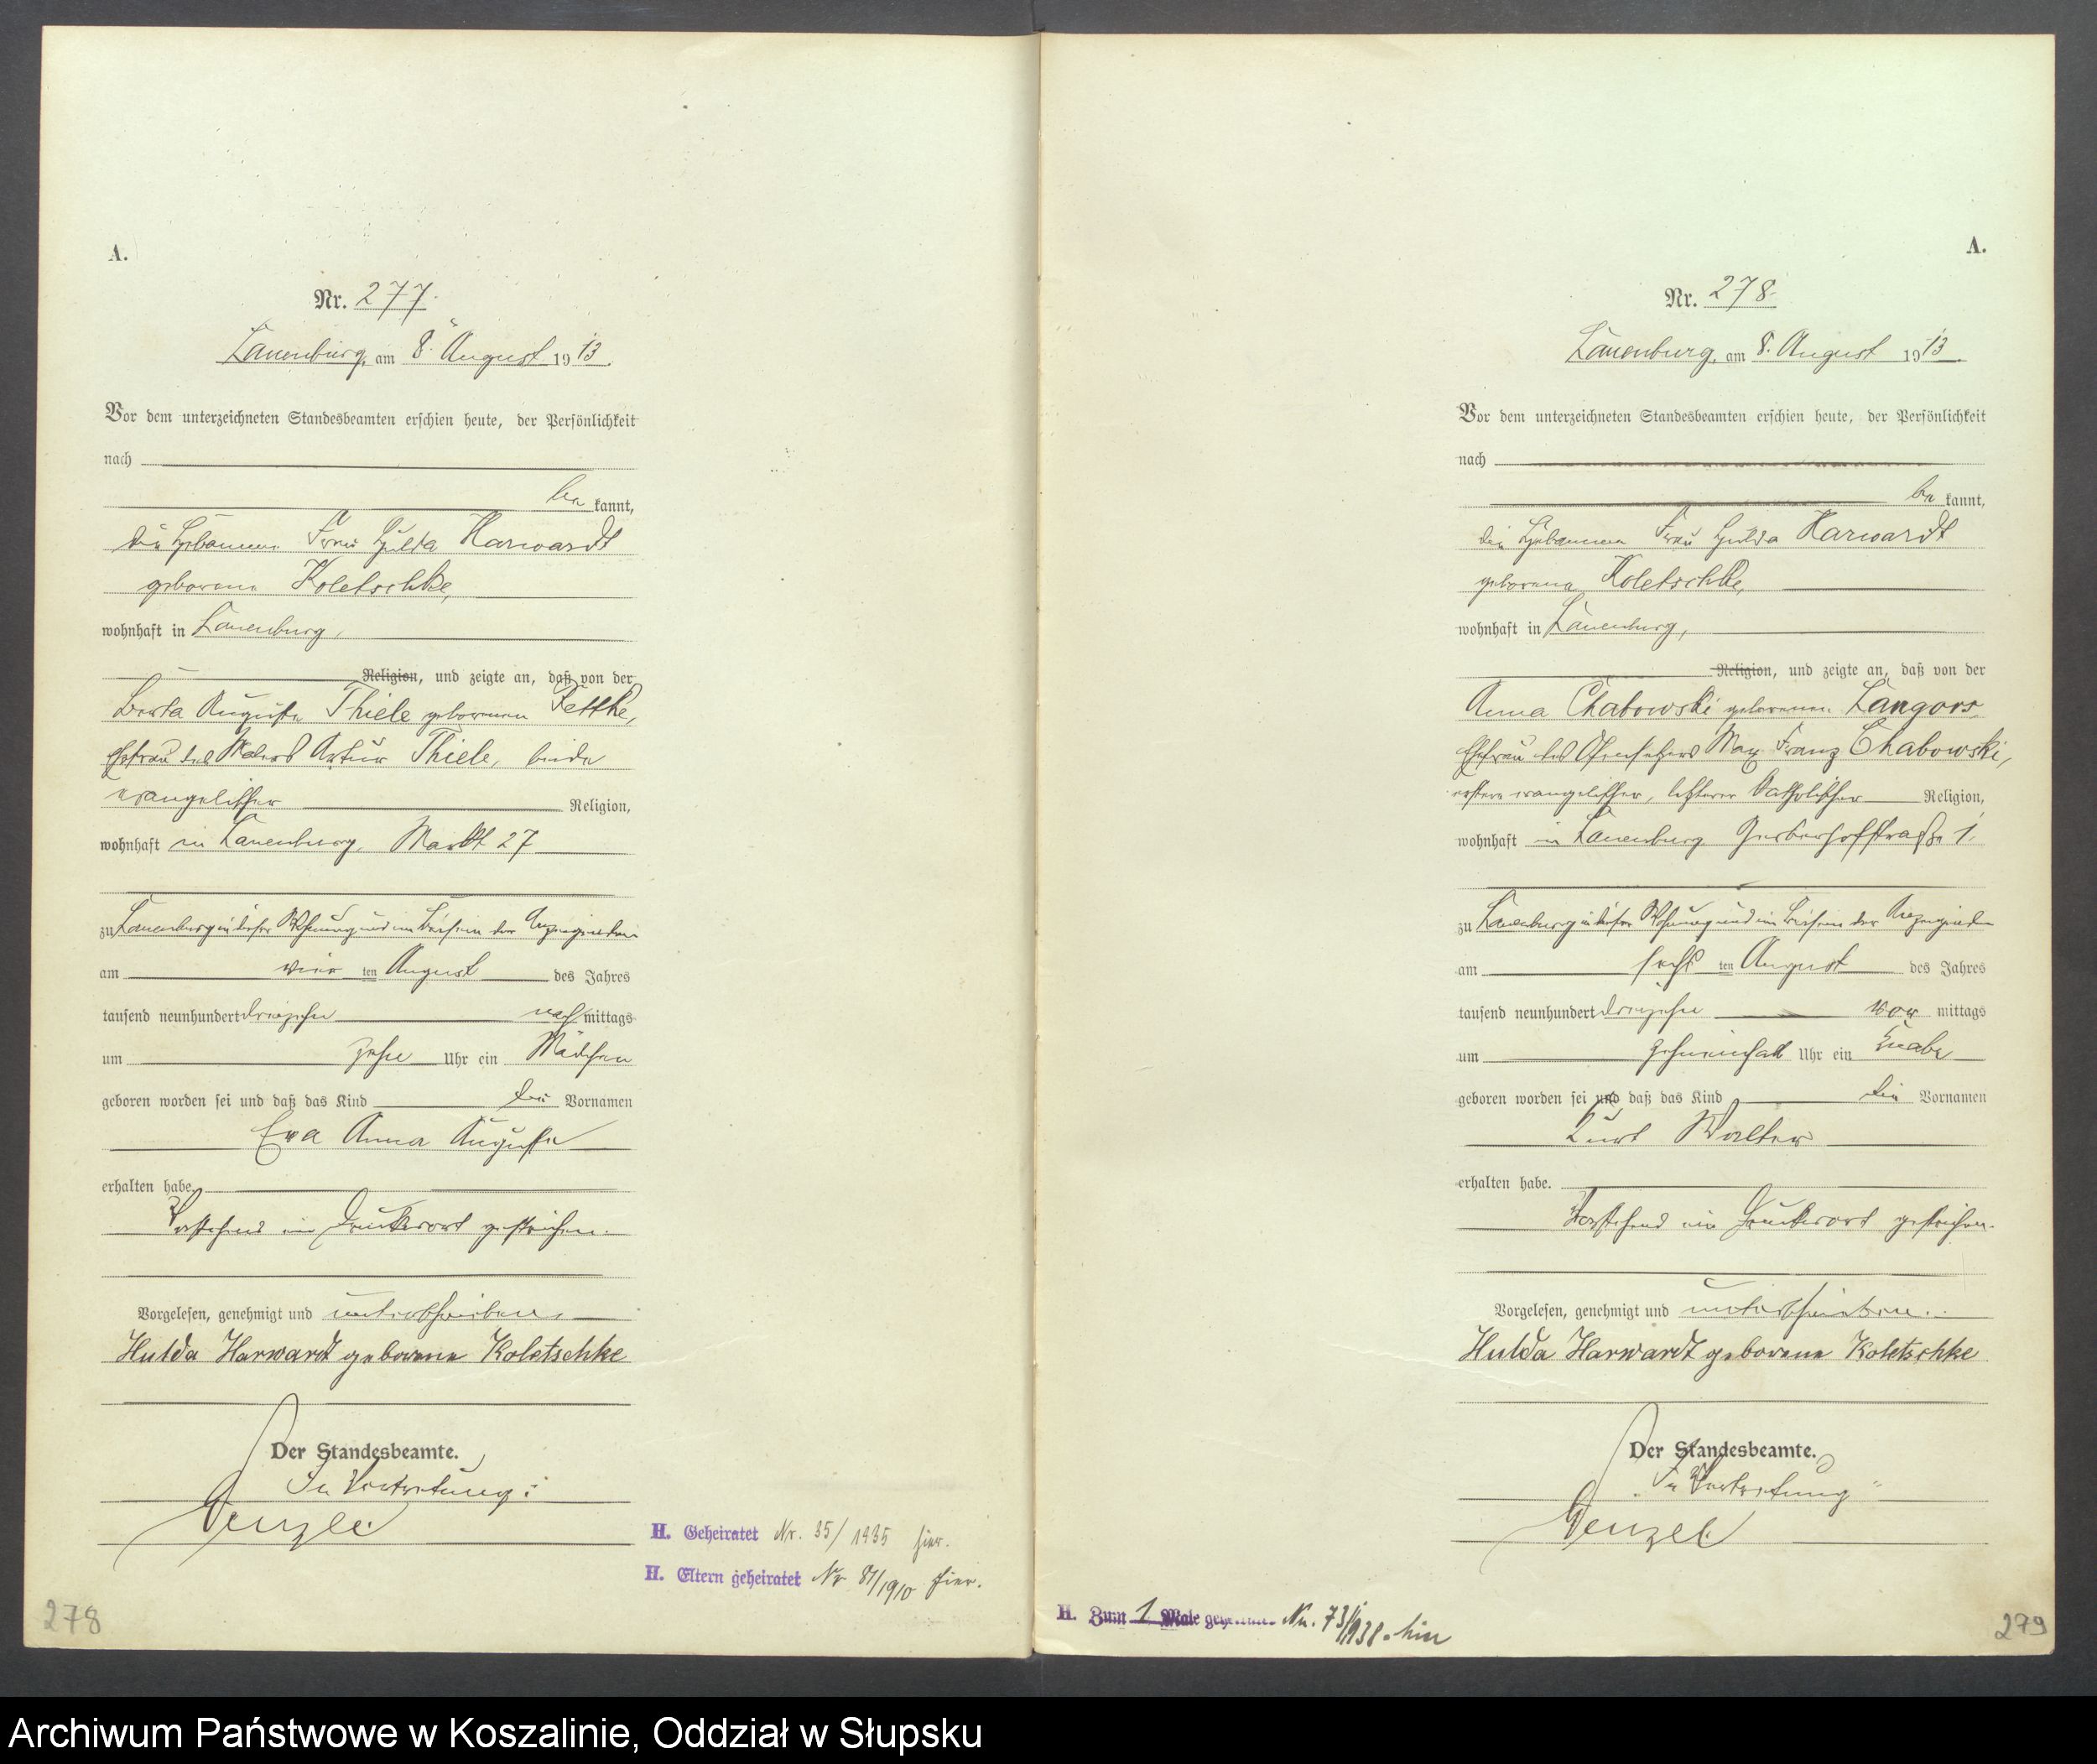 A.
Nr. 277.
Lauenburg, am 8. August 1913.
Vor dem unterzeichneten Standesbeamten erschien heute, der Persönlichkeit
nach
bekannt,
die Hebamme Frau Hulda Harwardt
geborene Koletschke,
wohnhaft in Lauenburg,
Religion, und zeigte an, daß von der
Berta Auguste Thiele geborenen Fettke,
Ehefrau des Malers Artur Thiele, beide
evangelischer Religion,
wohnhaft in Lauenburg, Markt 27
zu Lauenburg in dieser Wohnung und im Beisein der Anzeigenden
am vierten August des Jahres
tausend neunhundert dreizehn nachmittags
um zehn Uhr ein Mädchen
geboren worden sei und daß das Kind die Vornamen
Eva Anna Auguste
erhalten habe.
Vorstehend ein Druckwort gestrichen.
Vorgelesen, genehmigt und unterschrieben.
Hulda Harwardt geborene Koletschke
Der Standesbeamte.
In Vertretung:
Wenzel
H. Geheiratet Nr. 35/1935 hier.
H. Eltern geheiratet Nr 81/1910 hier.
278
A.
Nr. 278.
Lauenburg, am 8. August 1913.
Vor dem unterzeichneten Standesbeamten erschien heute, der Persönlichkeit
nach
bekannt,
die Hebamme Frau Hulda Harwardt
geborene Koletschke,
wohnhaft in Lauenburg,
Religion, und zeigte an, daß von der
Anna Chabowski geborenen Langors
Ehefrau des Ofensetzers Max Franz Chabowski,
erstere evangelischer, letzterer katholischer Religion,
wohnhaft in Lauenburg Gerberhofstraße 1.
zu Lauenburg in dieser Wohnung und im Beisein der Anzeigenden
am sechsten August des Jahres
tausend neunhundert dreizehn vormittags
um zehneinhalb Uhr ein Knabe
geboren worden sei und daß das Kind die Vornamen
Kurt Walter
erhalten habe.
Vorstehend ein Druckwort gestrichen.
Vorgelesen, genehmigt und unterschrieben.
Hulda Harwardt geborene Koletschke
Der Standesbeamte.
In Vertretung
Wenzel
H. Zum 1 Male geheiratet Nr. 73/1938. hier
279
Archiwum Państwowe w Koszalinie, Oddział w Słupsku